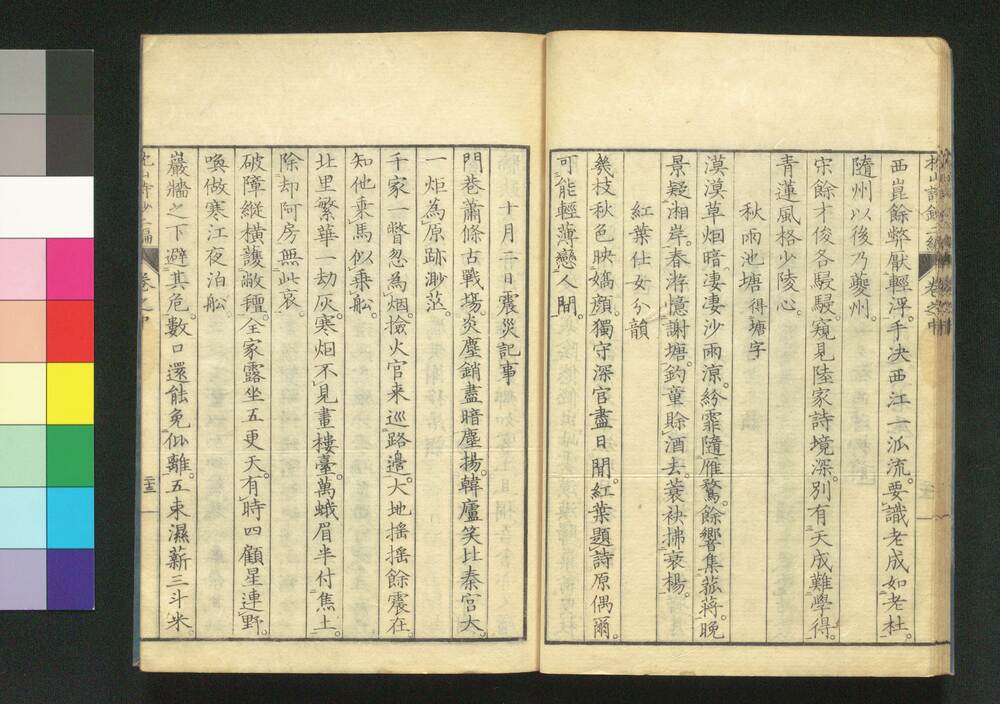 西崑餘弊厭輕浮。手决西江一派流。要識老成如老杜。
隨州以後乃夔州。
宋餘才俊各駸駸。窺見陸家詩境深。別有天成難學得。
青蓮風格少陵心。
秋雨池塘得塘字
漠漠草烟暗。凄凄沙雨凉。紛霏隨雁鶩。餘響集菰蔣。晩
景疑湘岸。春游憶謝塘。釣童賒酒去。蓑袂拂衰楊。
紅葉仕女分韻
幾枝秋色映嬌顔。獨守深宮盡日閒。紅葉題詩原偶爾。
可能輕薄戀人間。
十月二日震災記事
門巷蕭條古戰場。炎塵銷盡暗塵揚。韓廬笑比秦宮大。
一炬為原跡渺茫。
千家一瞥忽為烟。撿火官来巡路邊。大地搖搖餘震在。
知他乗馬似乗舩。
北里繁華一劫灰。寒烟不見畫樓臺。萬蛾眉半付焦土。
除却阿房無此哀。
破障縱横護敝氊。全家露坐五更天。有時四顧星連野。
喚做寒江夜泊舩。
巖牆之下避其危。數口還能免仳離。五束濕薪三斗米。
卷之中
二十三